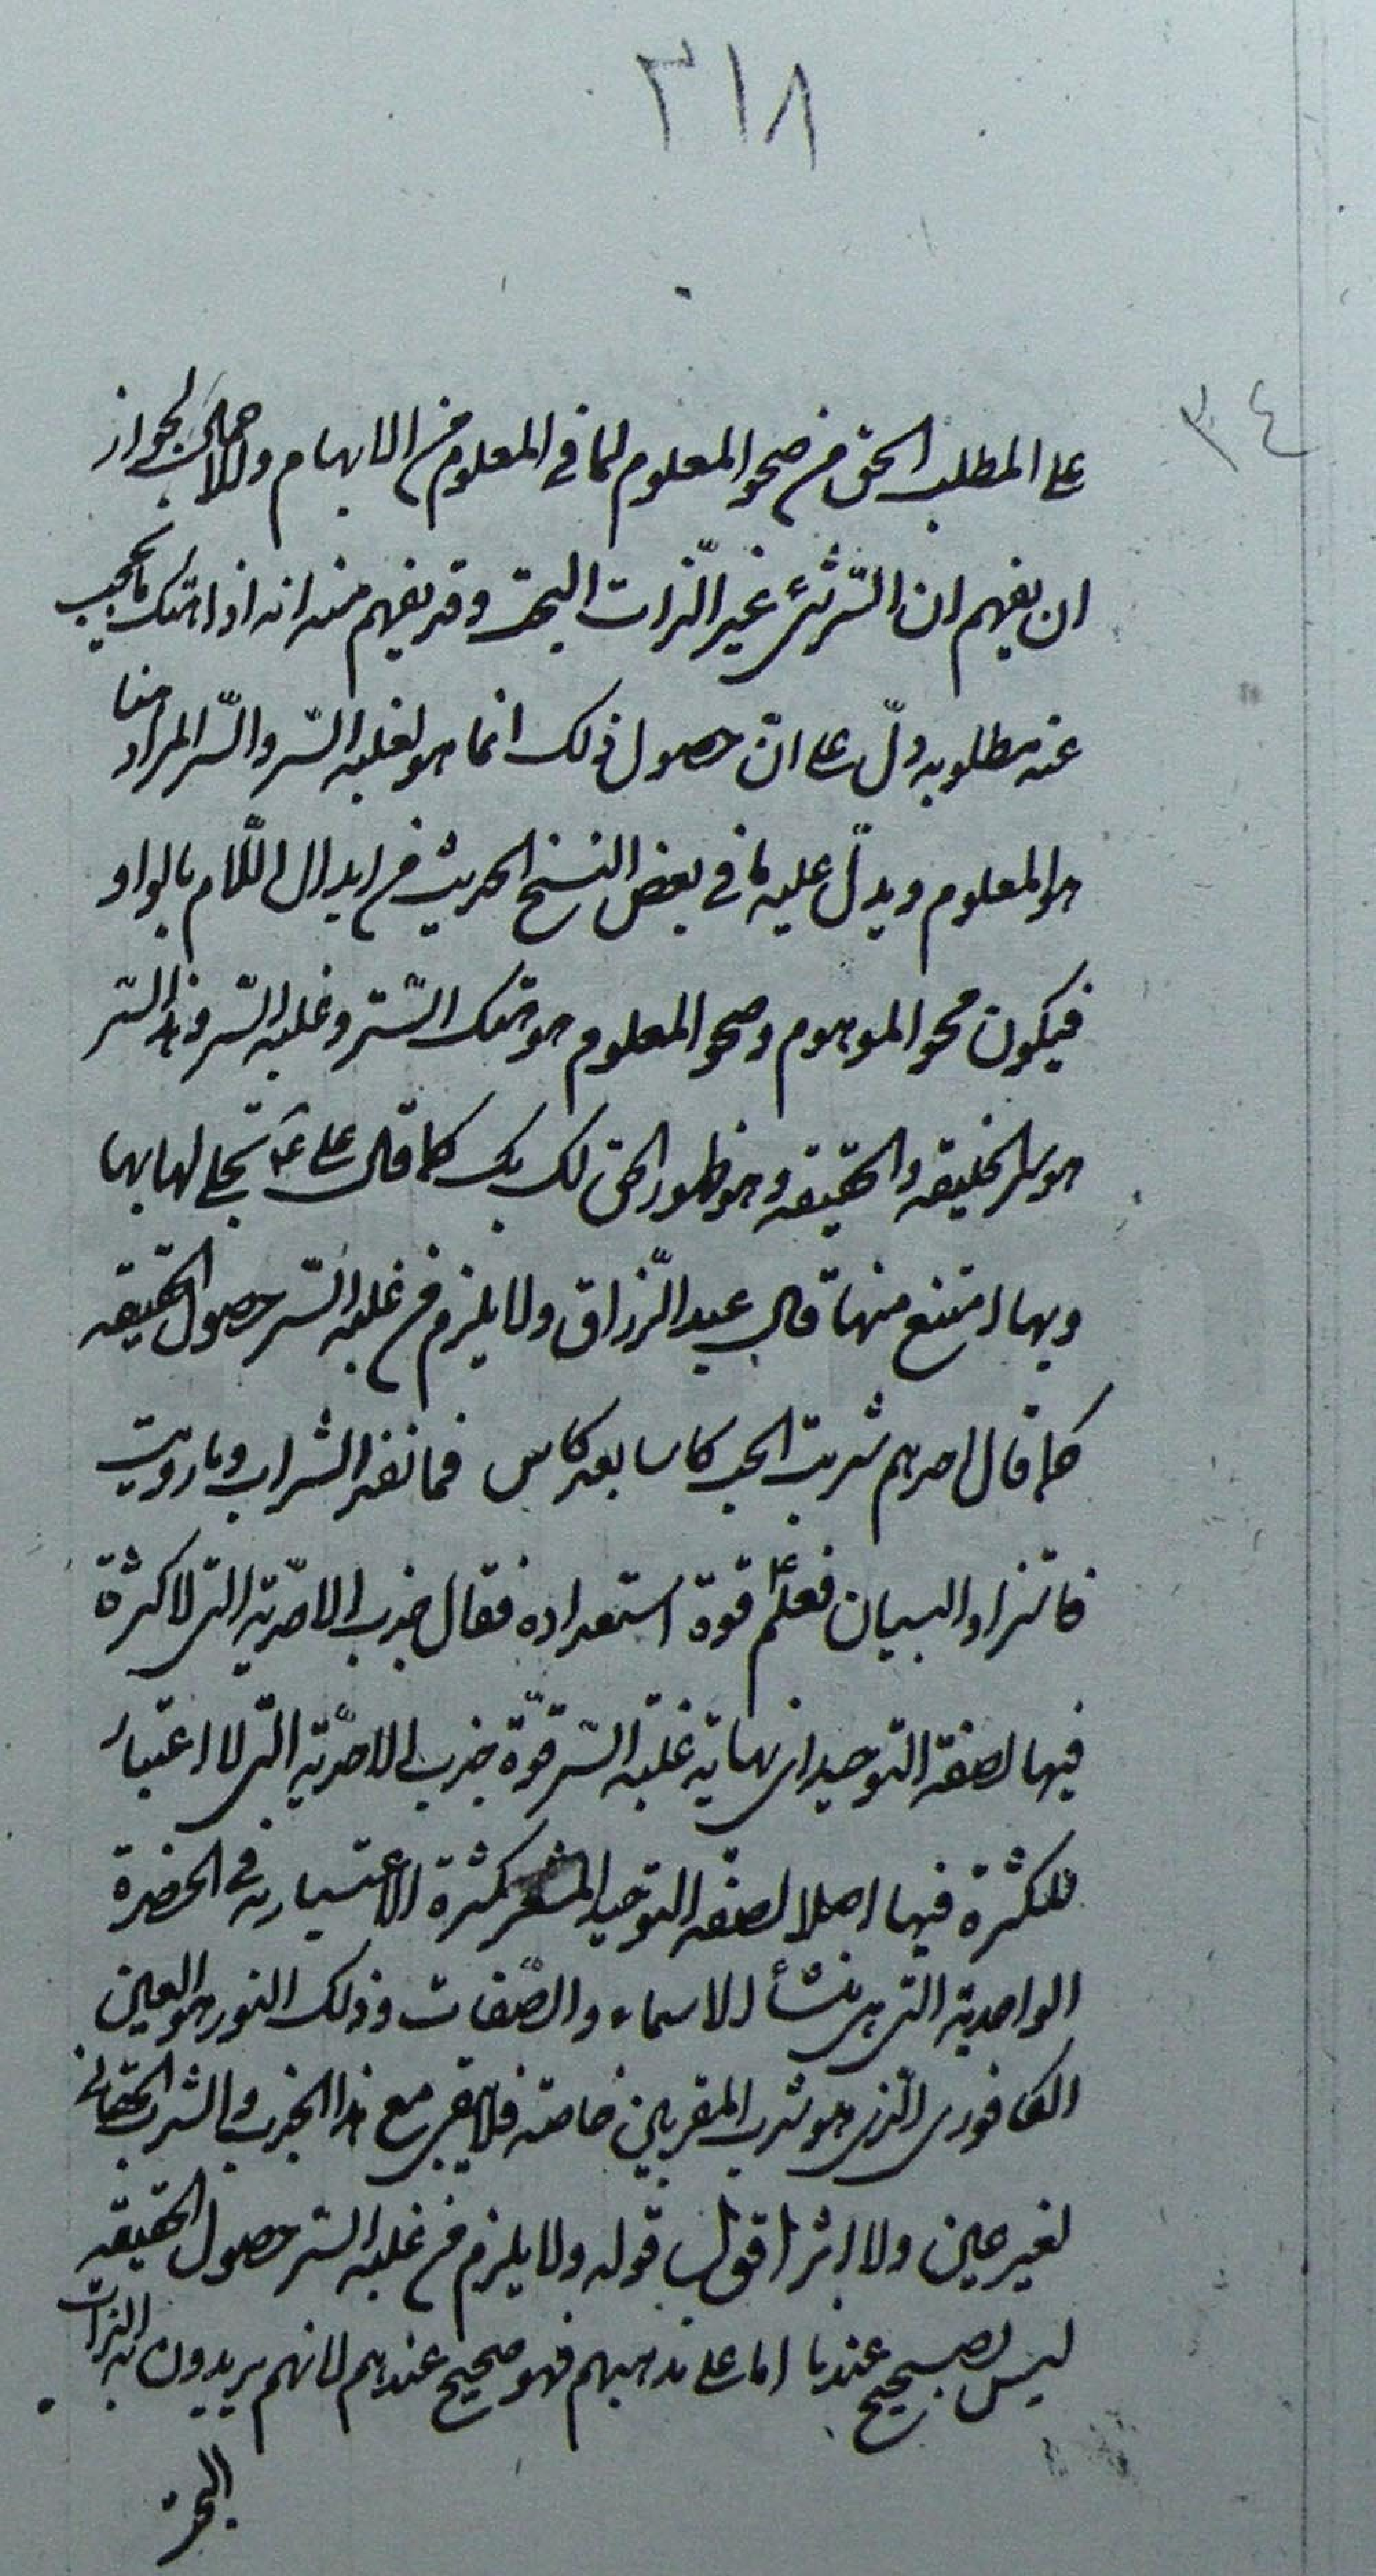 ٣١٨
٣٤
على المطلب الحق من صحو المعلوم لما في المعلوم من الابهام والاجمال لجواز
ان يفهم ان السّر شئ غير الذّات البحت وقد يفهم منه انه اذا هتك ما يحجب
عنه مطلوبه دلّ على انّ حصول ذلك انما هو لغلبة السّر والسّر المراد هنا
هو المعلوم ويدلّ عليه ما في بعض النسخ الحديث من ابدال اللّام بالواو
فيكون محو الموهوم وصحو المعلوم هو هتك السّتر وغلبة السّر وهذا السّر
هو سر الخليقه والحقيقه وهو ظهور الحق لك بك كما قال على ع تجلى لها بها
وبها امتنع منها قال عبد الرّزاق ولا يلزم من غلبة السّر حصول الحقيقه
كما قال احدهم شربت الحب كاسا بعد كاس فما نفد الشراب وما رويت
فاستزاد البيان فعلم ع قوة استعداده فقال جذب الاحدّية التى لا كثرة
فيها لصفة التوحيد اى نهاية غلبة السّر قوّة جذب الاحدّية التى لا اعتبار
للكثرة فيها اصلا لصفة التوحيد المشعر بكثرة الاعتبارية في الحضرة
الواحدية التى هى منشأ الاسماء والصّفات وذلك النور هو العين
الكافورى الّذى هو شرب المقربين خاصة فلا يبقى مع هذا الجذب والشرب الحقانى
لغير عين ولا اثر اقول قوله ولا يلزم من غلبة السّر حصول الحقيقه
ليس بصحيح عندنا اما على مذهبهم فهو صحيح عندهم لانهم يريدون به الذات
البحت